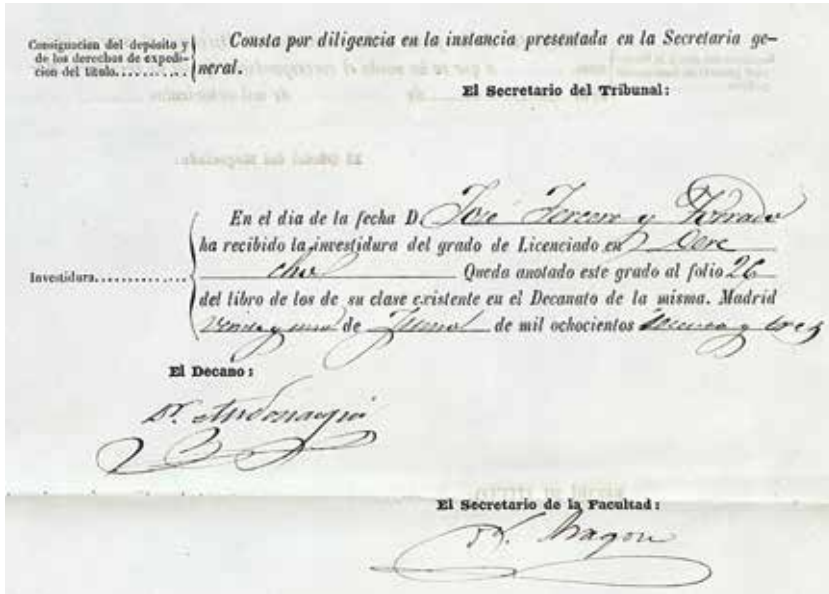 Consignacion del depósito y
de los derechos de expedi-
cion del título..........
Consta por diligencia en la instancia presentada en la Secretaria ge-
neral.
El Secretario del Tribunal:
En el dia de la fecha D. José Tercero y Torrado
ha recibido la investidura del grado de Licenciado en Dere
Investidura............
cho Queda anotado este grado al folio 26
del libro de los de su clase existente en el Decanato de la misma. Madrid
veinte y uno de Junio de mil ochocientos sesenta y tres
El Decano:
Dr. Andonaegui
El Secretario de la Facultad:
Dr. Aragon